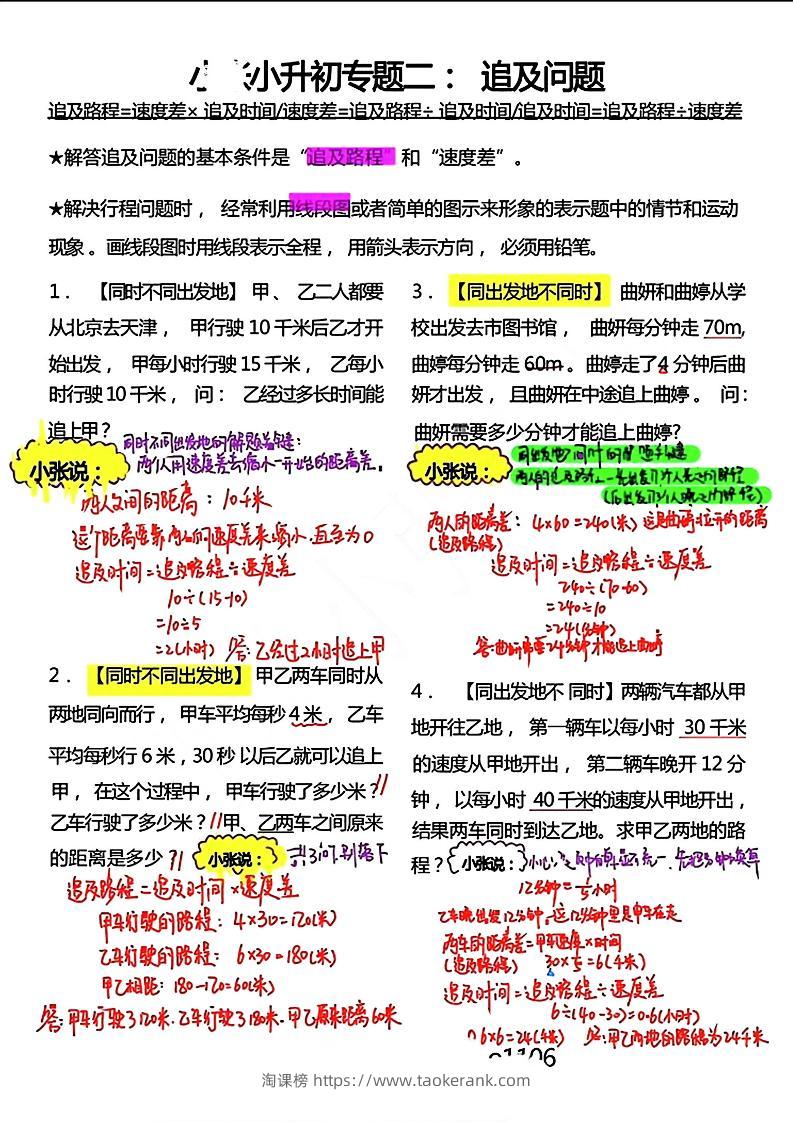 小张小升初专题二： 追及问题
追及路程=速度差× 追及时间/速度差=追及路程÷ 追及时间/追及时间=追及路程÷速度差
★解答追及问题的基本条件是“追及路程”和“速度差”。
★解决行程问题时， 经常利用线段图或者简单的图示来形象的表示题中的情节和运动
现象 。画线段图时用线段表示全程， 用箭头表示方向， 必须用铅笔。
1． 【同时不同出发地】 甲、 乙二人都要
从北京去天津， 甲行驶 10 千米后乙才开
始出发， 甲每小时行驶 15 千米， 乙每小
时行驶 10 千米， 问： 乙经过多长时间能
追上甲？
同时不同出发地的解题关键：
小张说：
两人用速度差去缩小一开始的距离差。
两人之间的距离：10千米
这个距离要靠两人的速度差来缩小.直至为0
追及时间=追及路程÷速度差
10÷(15-10)
=10÷5
=2(小时) 答：乙经过2小时追上甲
2． 【同时不同出发地】 甲乙两车同时从
两地同向而行， 甲车平均每秒 4 米， 乙车
平均每秒行 6 米，30 秒 以后乙就可以追上
甲， 在这个过程中， 甲车行驶了多少米？
乙车行驶了多少米？ 甲、乙两车之间原来
的距离是多少？
小张说：
共3问,别落下
追及路程=追及时间×速度差
甲车行驶的路程：4×30=120(米)
乙车行驶的路程：6×30=180(米)
甲乙相距：180-120=60(米)
答：甲车行驶了120米.乙车行驶了180米.甲乙原来距离60米
3． 【同出发地不同时】 曲妍和曲婷从学
校出发去市图书馆， 曲妍每分钟走 70m,
曲婷每分钟走 60m 。曲婷走了4 分钟后曲
妍才出发， 且曲妍在中途追上曲婷 。 问：
曲妍需要多少分钟才能追上曲婷?
小张说：
两人的距离差：4×60=240(米)
(追及路程)
追及时间=追及路程÷速度差
240÷(70-60)
=240÷10
=24(分钟)
答:曲妍需要24分钟才能追上曲婷
4． 【同出发地不 同时】两辆汽车都从甲
地开往乙地， 第一辆车以每小时 30 千米
的速度从甲地开出， 第二辆车晚开 12 分
钟， 以每小时 40 千米的速度从甲地开出，
结果两车同时到达乙地。求甲乙两地的路
程？
小张说：
12分钟=1/5小时
乙车晚出发12分钟,这12分钟里是甲车在走
两车的距离差=甲车速度×时间
(追及路程) 30×1/5=6(千米)
追及时间=追及路程÷速度差
6÷(40-30)=0.6(小时)
答:甲乙两地的路程为24千米
淘课榜 https://www.taokerank.com